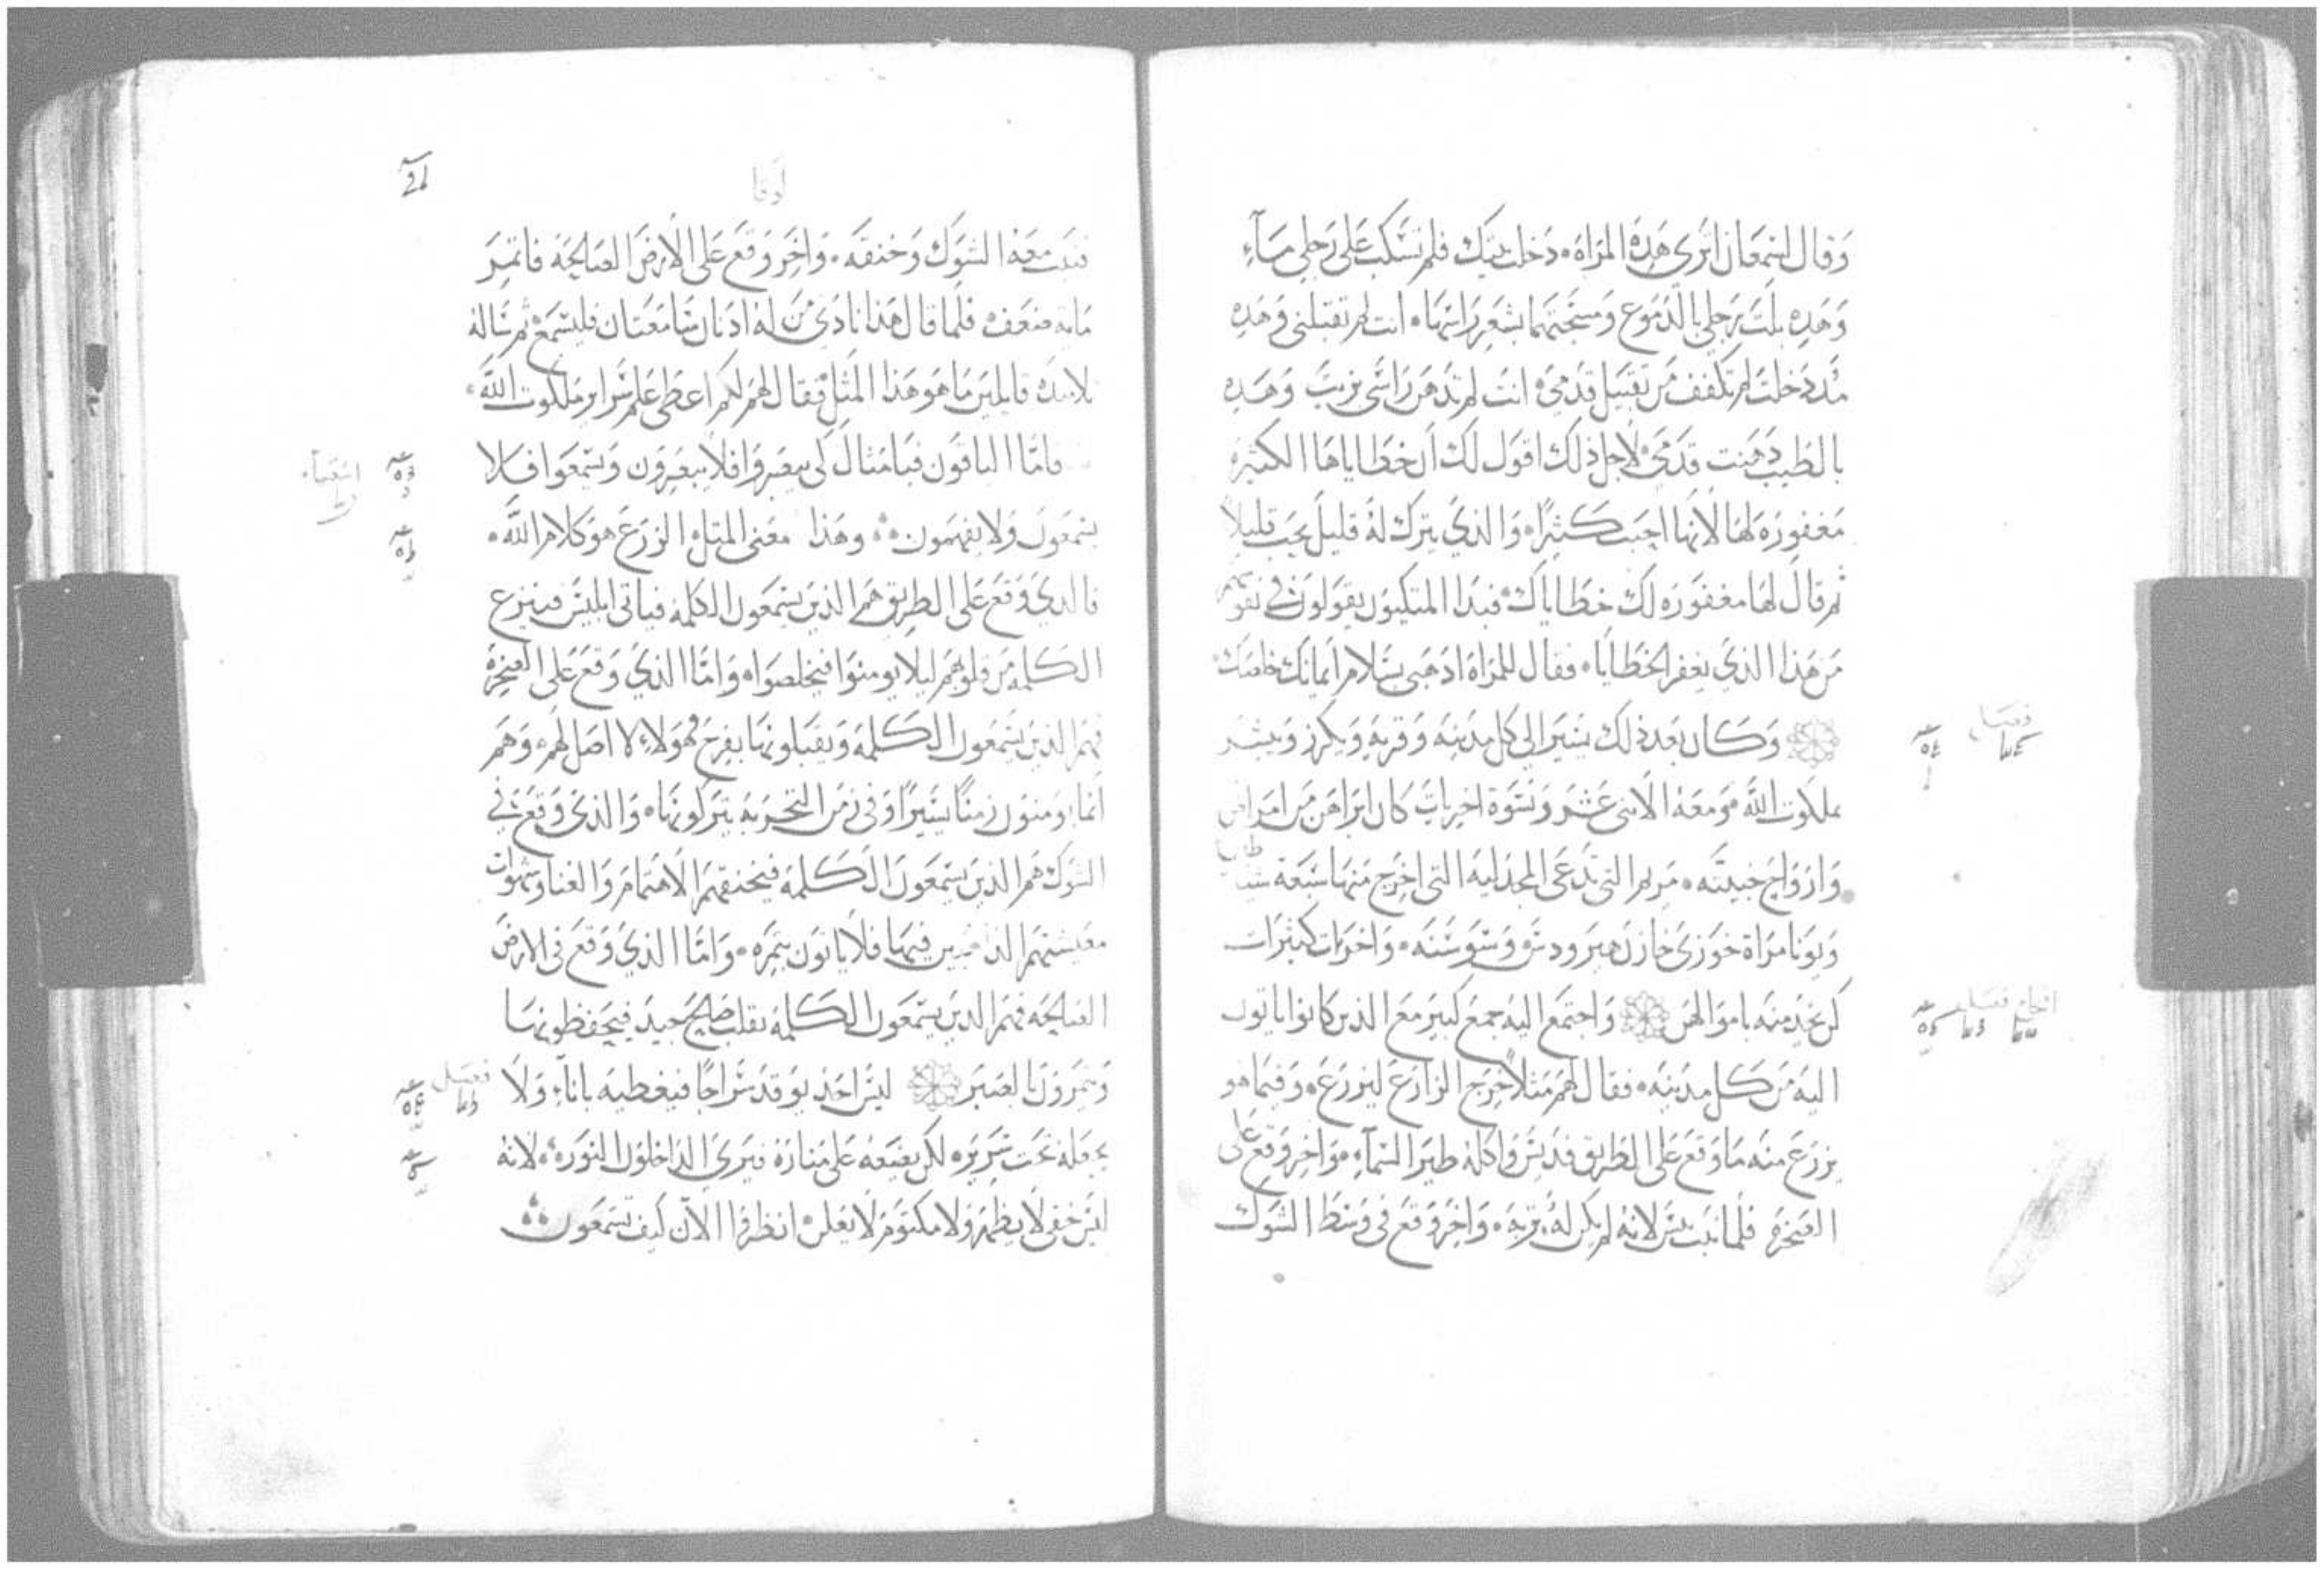 وقال لسمعان اترى هذه المراة دخلت بيتك فلم تسكب على رجلي مآء
وهذه بلت رجلي بالدموع ومسحتهما بشعر راسها انت لم تقبلني وهذه
مند دخلت لم تكفف من تقبيل قدمي انت لم تدهن راسي بزيت وهذه
بالطيب دهنت قدمي لاجل ذلك اقول لك ان خطاياها الكثيره
مغفوره لها لانها احبت كثيرًا والذي يترك له قليل يحب قليلاً
ثم قال لها مغفوره لك خطاياك فبدا المتكيون يقولون في نفوسهم
من هذا الذي يغفر الخطايا فقال للمراة ادهبي بسلام ايمانك خلصك
وكان بعد ذلك يسير الى كل مدينه وقريه ويكرز ويبشر
بملكوت الله ومعه الاثنى عشر ونسوة اخريات كان ابراهن من امراض
وارواح خبيثه مريم التي تدعى المجدليه التي اخرج منها سبعة شياطين
ويونا مراة خوزي خازن هيرودس وسوسنه واخريات كثيرات
كن يخدمنه باموالهن واجتمع اليه جمع كبير مع الدين كانوا ياتون
اليه من كل مدينه فقال لهم مثلاً خرج الزارع ليزرع وفيما هو
يزرع منه ما وقع على الطريق فديس واكله طير السمآء واخر وقع على
الصخره فلما نبت يبس لانه لم يكن له تربه واخر وقع في وسط الشوك
فصل
لوقا
فنبت معه الشوك وخنقه واخر وقع على الارض الصالحه فاتمر
مايه ضعف فلما قال هذا نادى من له ادنان سامعتان فليسمع ثم ساله
تلاميده قايلين ما هو هذا المثل فقال لهم لكم اعطى علم سراير ملكوت الله
فاما الباقون فبامثال لكي يبصروا فلا يبصرون ويسمعوا فلا
يسمعون ولا يفهمون وهذا معنى المتل الزرع هو كلام الله
فالدي وقع على الطريق هم الذين يسمعون الكلمه فياتي ابليس فينزع
الكلمه من قلوبهم ليلا يومنوا فيخلصوا واما الذي وقع على الصخره
فهم الذين يسمعون الكلمه ويقبلونها بفرح فهولاء لا اصل لهم وهم
انما يومنون زمنًا يسيرًا وفي زمن التجربه يتركونها والذي وقع في
الشوك هم الذين يسمعون الكلمه فيخنقهم الاهتمام والغنا وشهوات
معيشتهم فيها فلا ياتون بثمره واما الذي وقع في الارض
الصالحه فهم الدين يسمعون الكلمه بقلب صالح جيد فيحفظونها
ويثمرون بالصبر ليس احد يوقد سراجًا فيغطيه باناء ولا
يجعله تحت سريره لكن يضعه على منارة فيرى الداخلون النوره لانه
ليس خفي لا يظهر ولا مكتوم لا يعلن انظروا الآن كيف تسمعون
اشعيآء
فصل